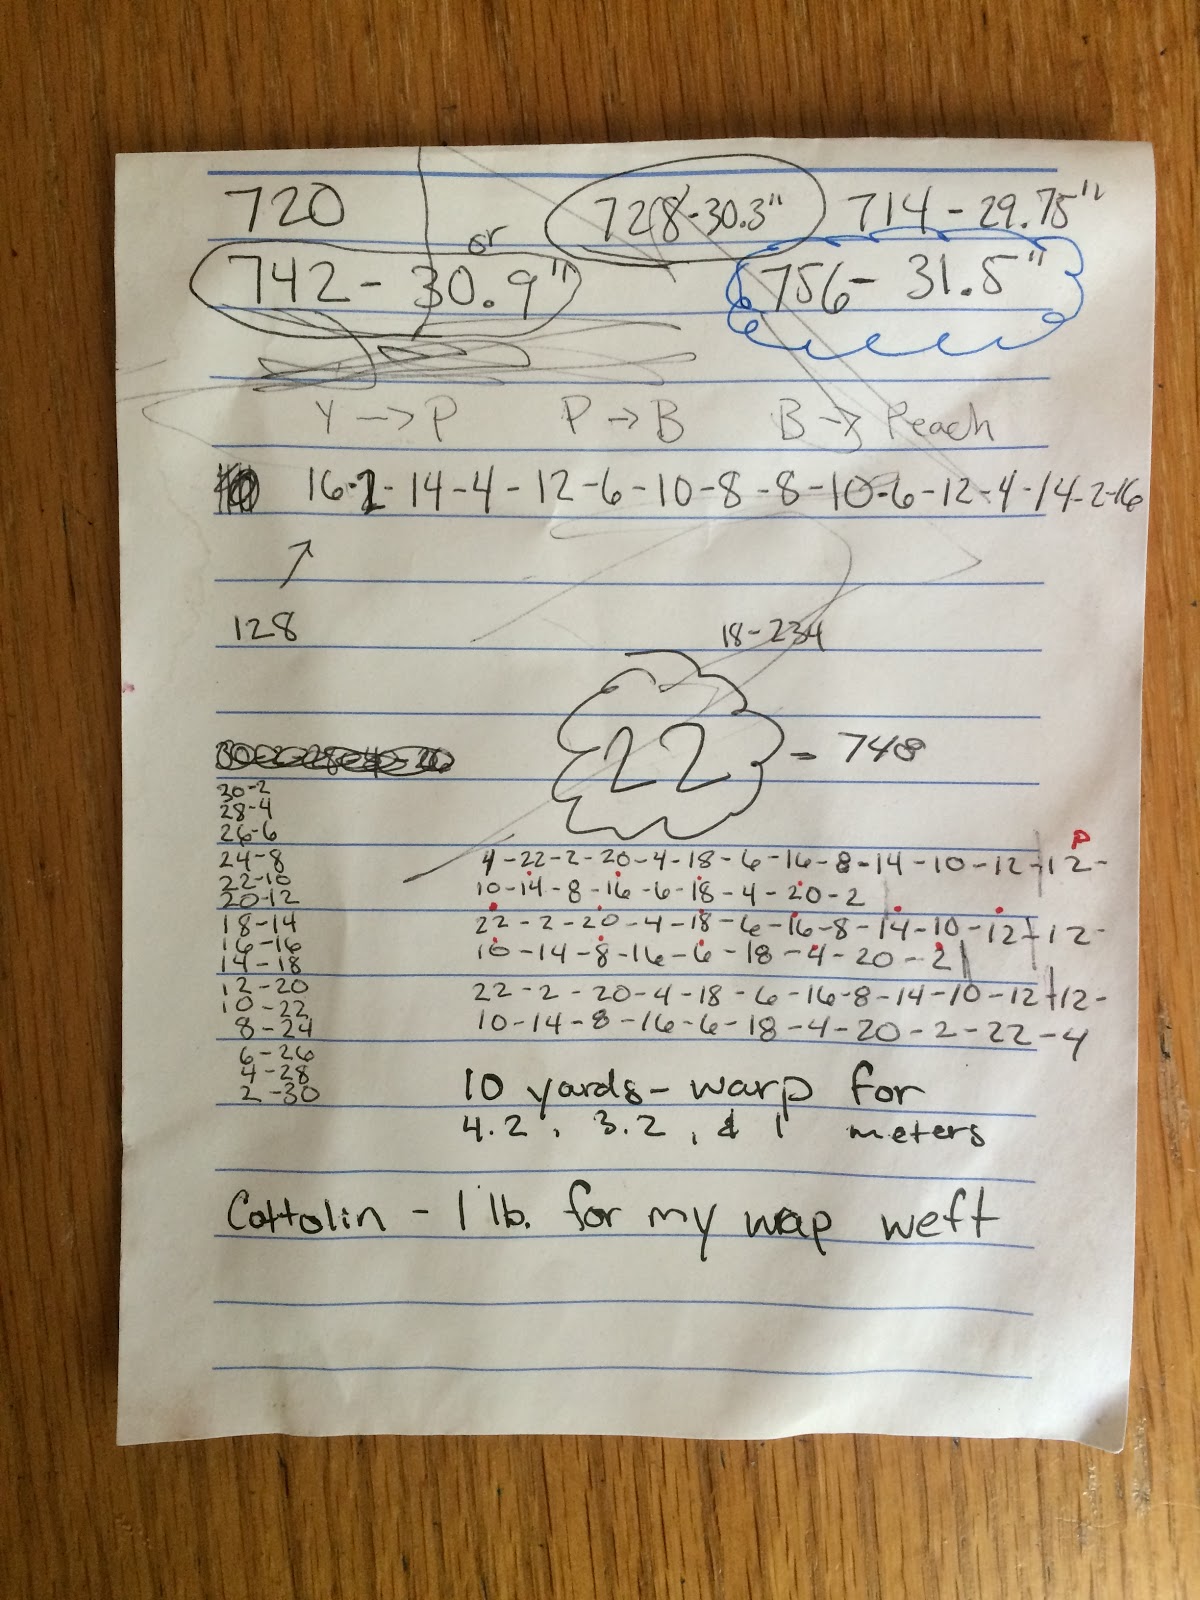 720 728-30.3" 714-29.75"
or
742-30.9" 756-31.5"
Y → P P → B B → Peach
16-2-14-4-12-6-10-8-8-10-6-12-4-14-2-16
↗
128 18-234
22 = 748
30-2
28-4
26-6
24-8
22-10
20-12
18-14
16-16
14-18
12-20
10-22
8-24
6-26
4-28
2-30
P
4-22-2-20-4-18-6-16-8-14-10-12-12-
10-14-8-16-6-18-4-20-2
22-2-20-4-18-6-16-8-14-10-12-12-
10-14-8-16-6-18-4-20-2
22-2-20-4-18-6-16-8-14-10-12-12-
10-14-8-16-6-18-4-20-2-22-4
10 yards - warp for
4.2, 3.2, & 1 meters
Cottolin - 1 lb. for my wap weft